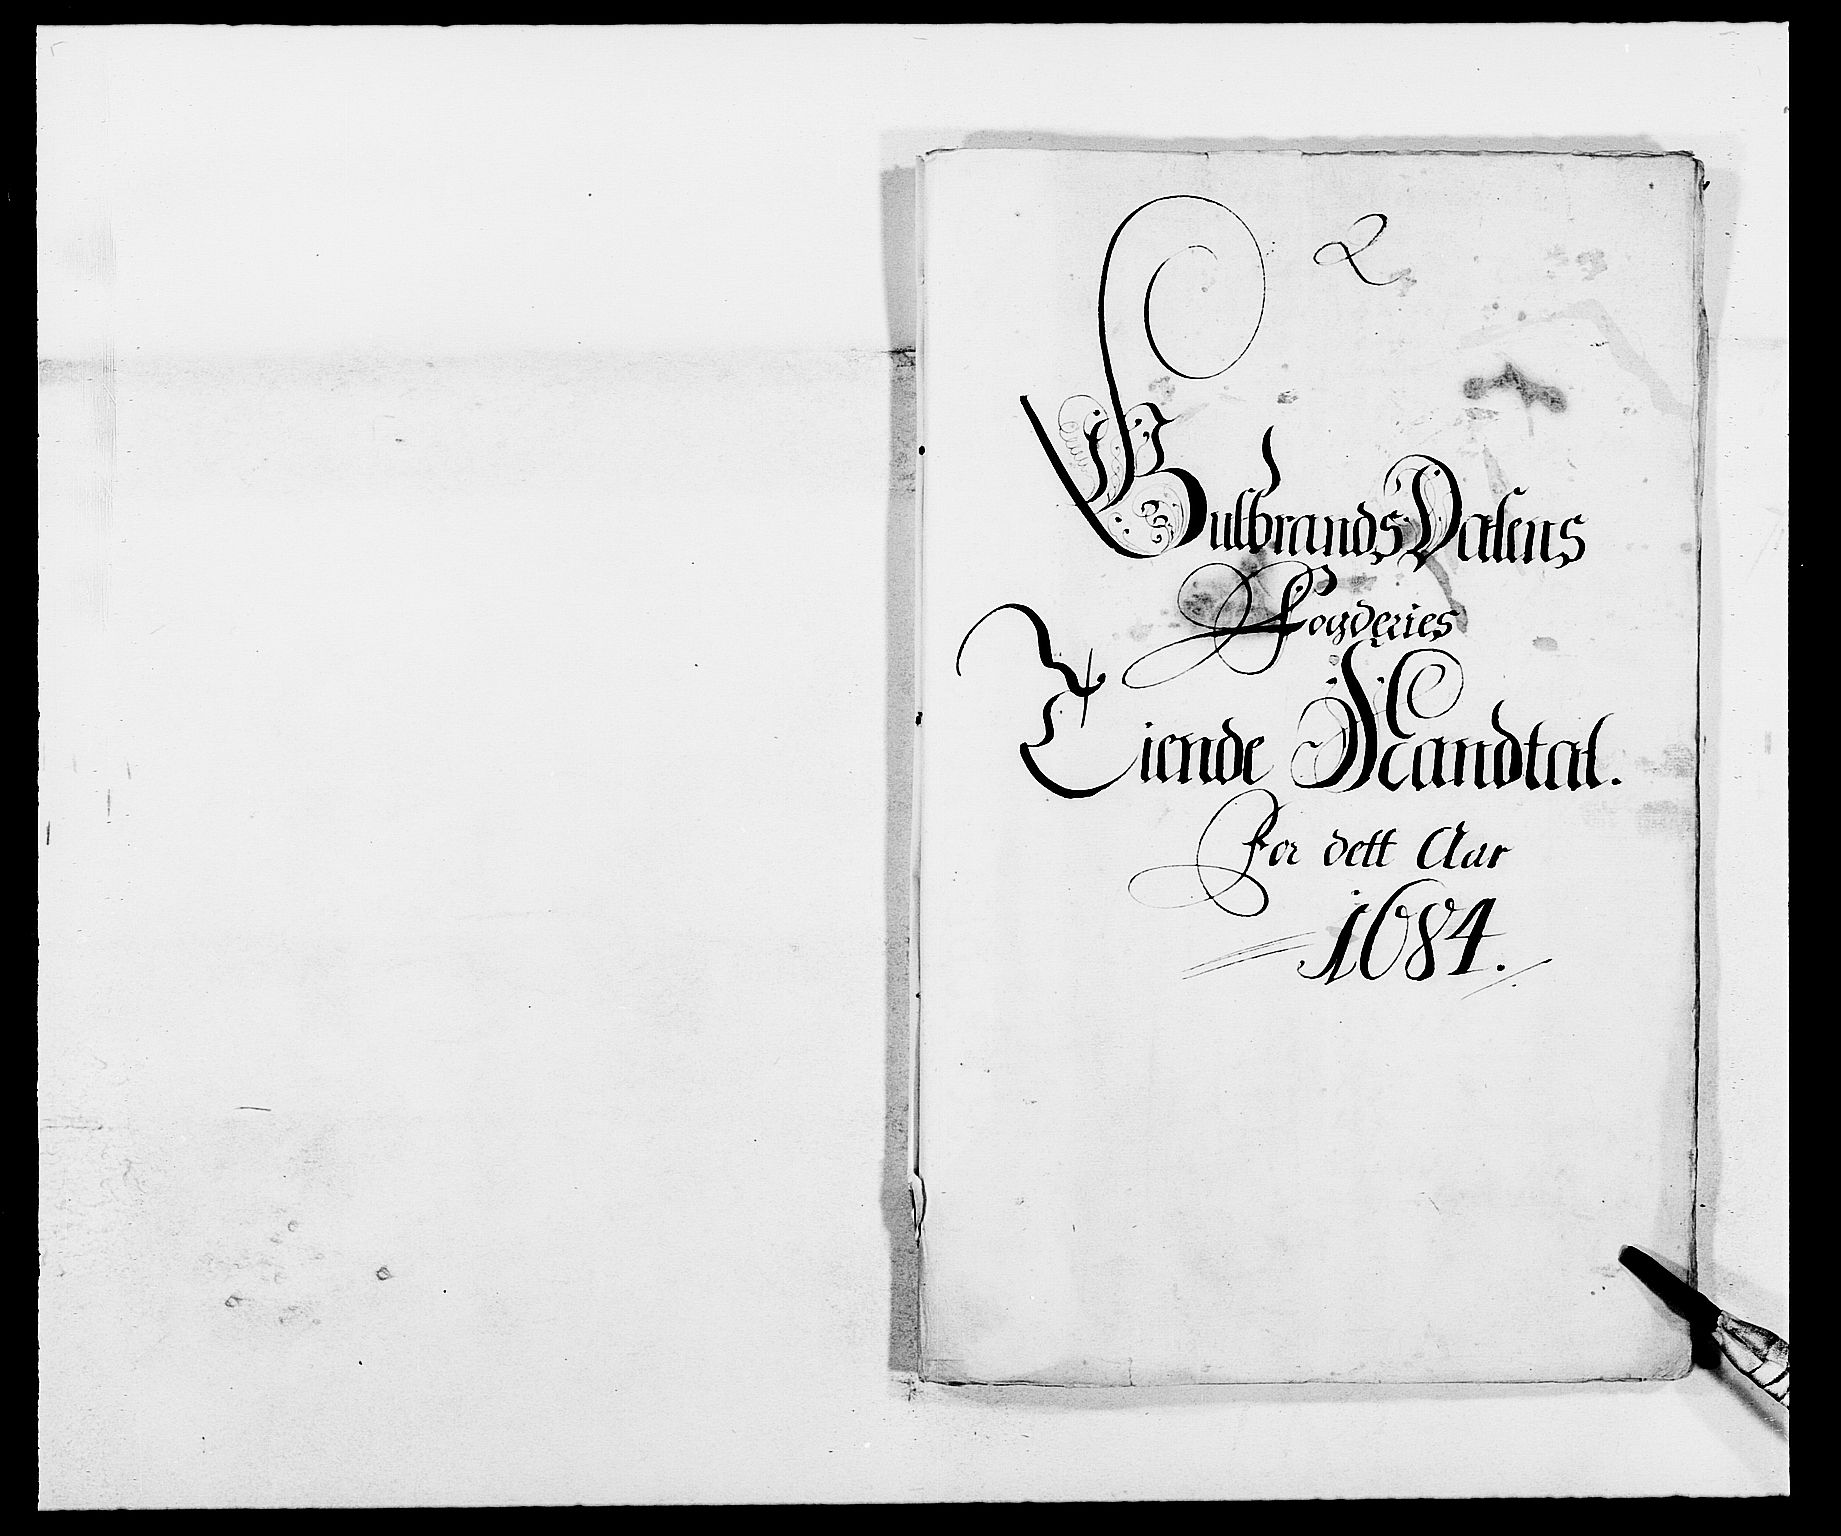 2
Gulbrands Dalens
Fogderies
Tiende Mandtal.
For dett Aar
1684.